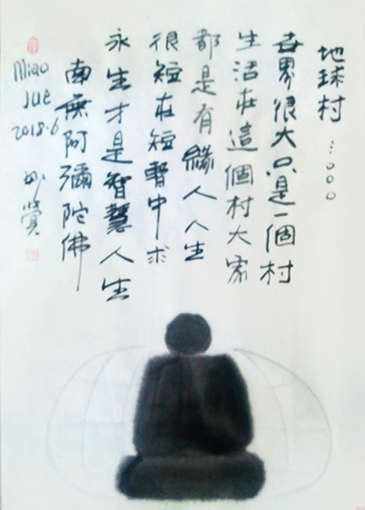 地球村⋮○○○
世界很大只是一個村
生活在這個村大家
都是有緣人人生
很短在短暫中求
永生才是智慧人生
南無阿彌陀佛
Miao
Jue
2018.6
妙覺